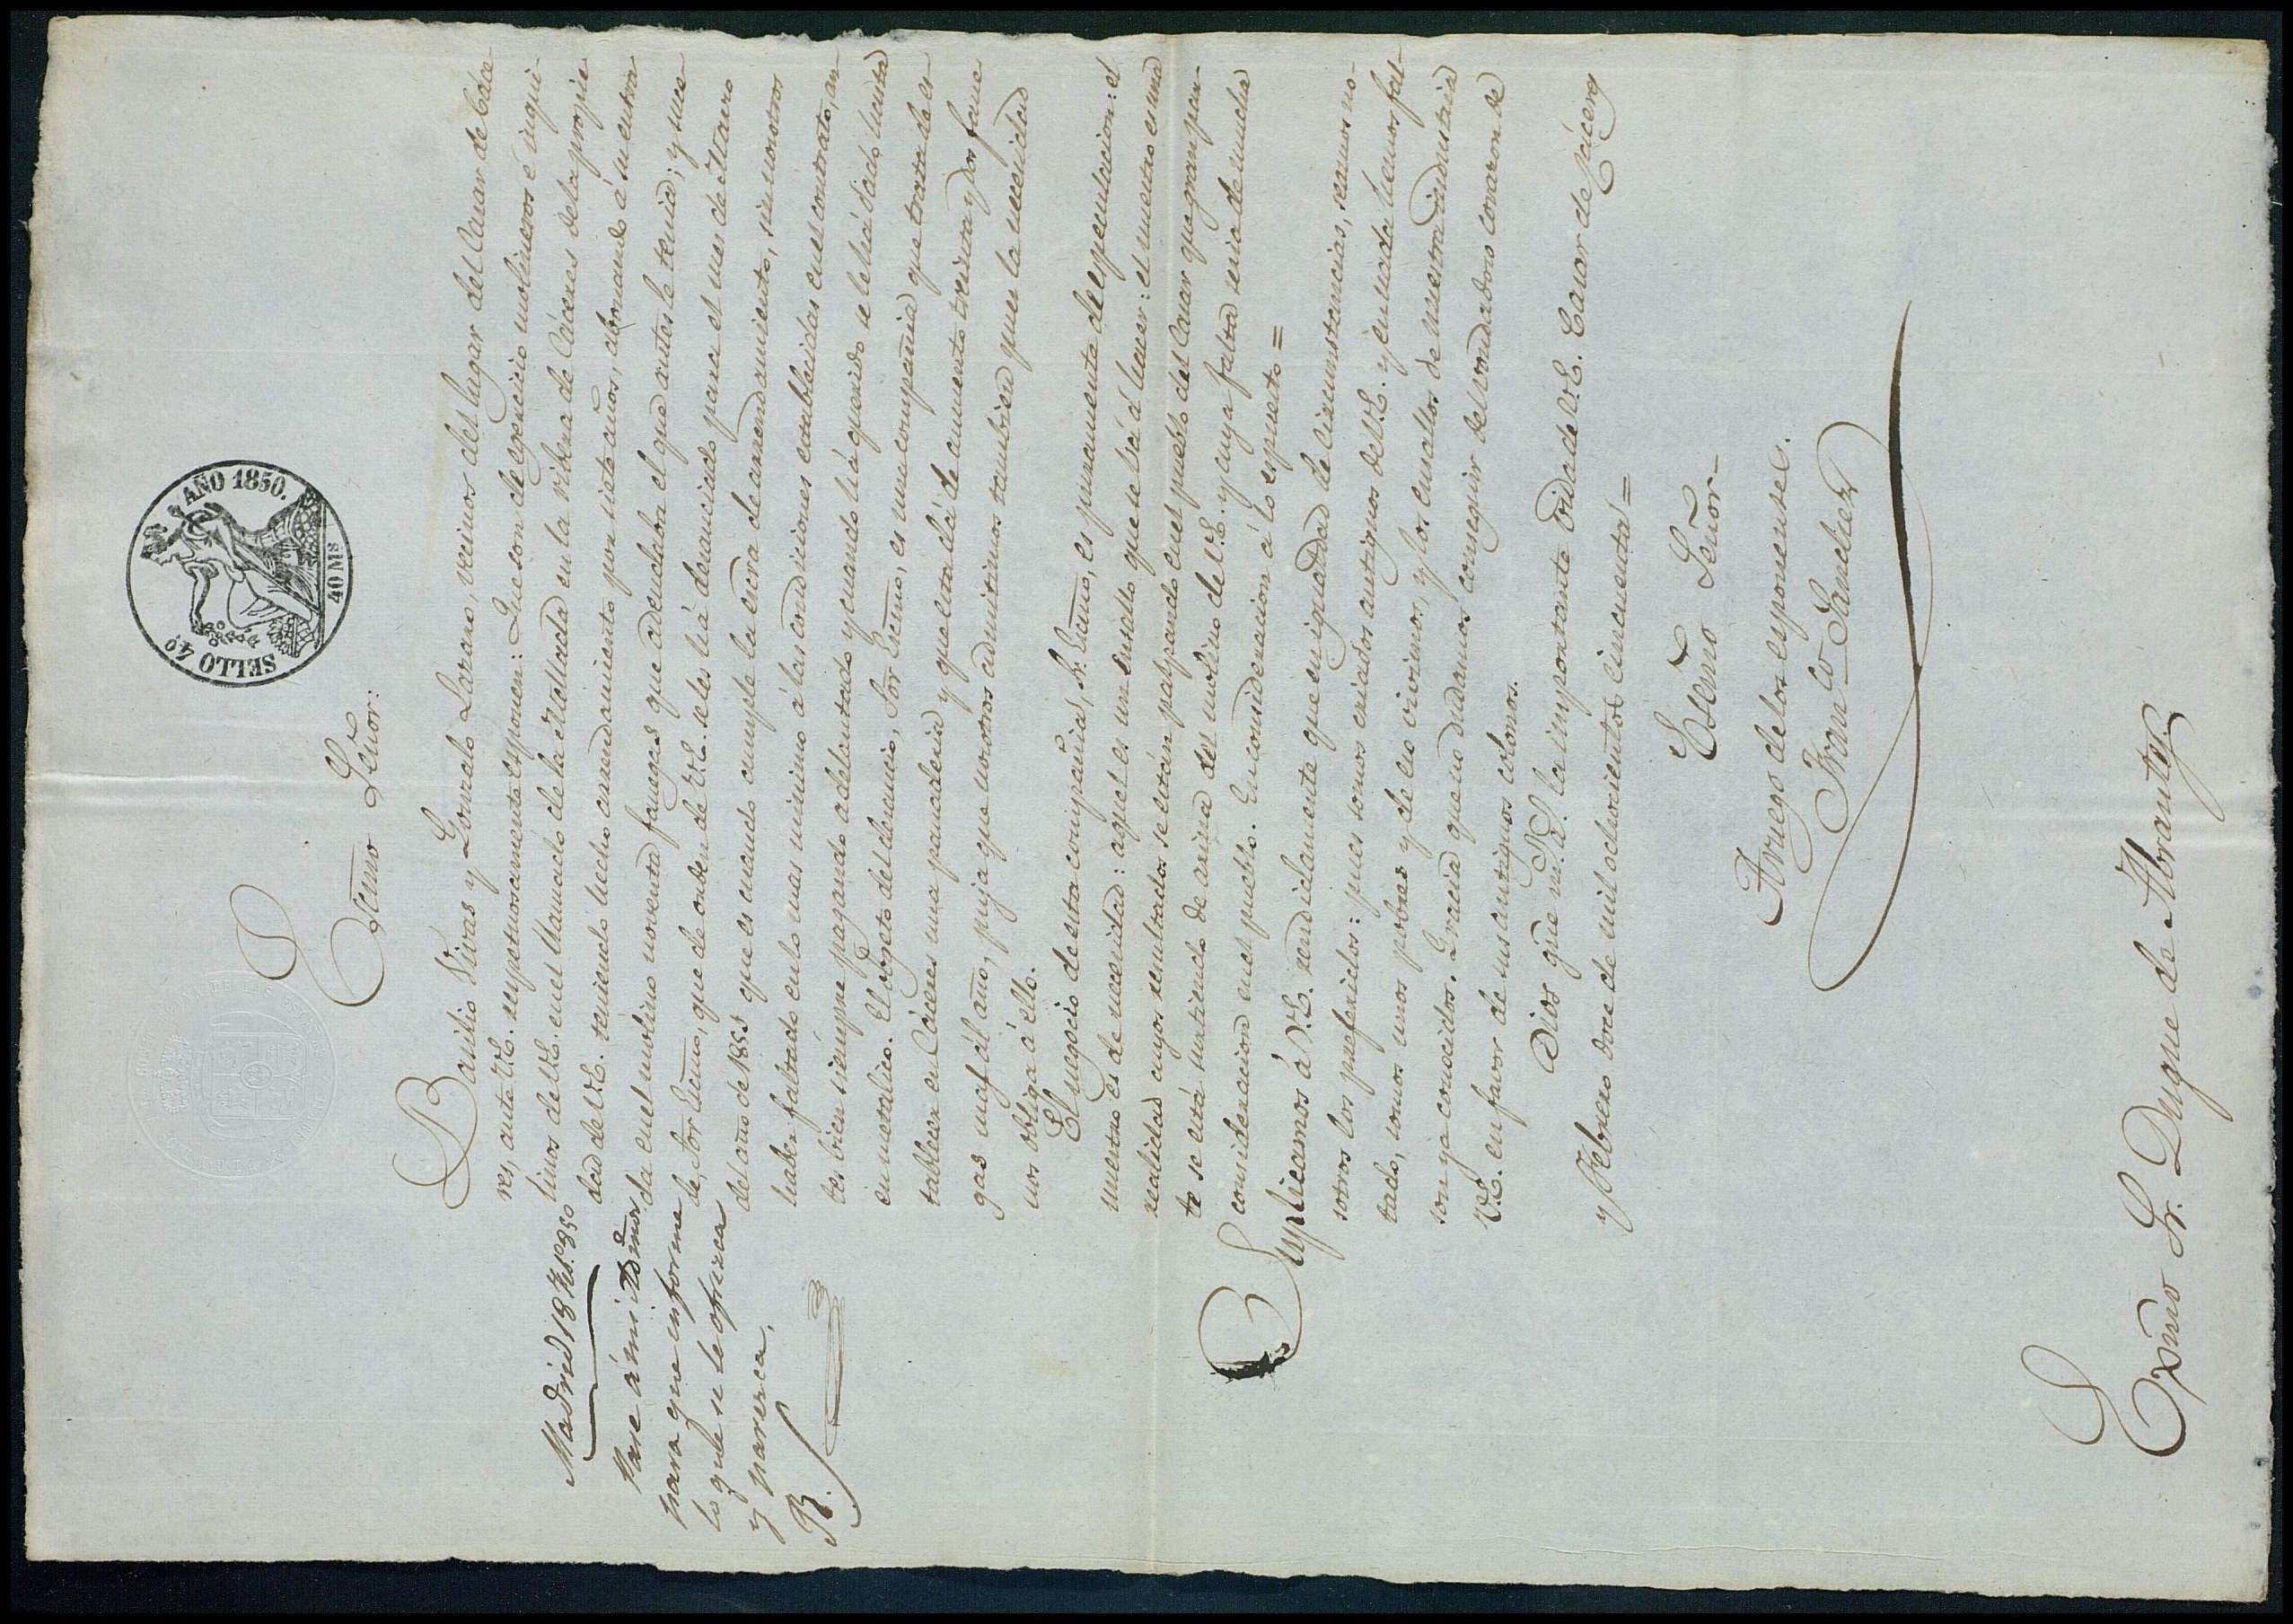 SELLO 4º AÑO 1850.
40 Ms
Escmo Señor:
Basilio Vivas y Gonzalo Lazaro, vecinos del lugar del Casar de Cáce
res, ante V.E. respetuosamente esponen: Que son de egercicio molineros é inqui-
linos de V.E. en el llamado de la en la ribera de Cáceres de la propie
dad de V.E. teniendo hecho arrendamiento por siete años, abonando á su entra
da en el molino noventa fanegas que adeudaba el que antes le tenia; y suce
de, Sor Escmo, que de orden de V.E. se les há denunciado para el mes de Enero
del año de 1851 que es cuando cumple la escra de arrendamiento, sin nosotros
haber faltado en lo mas minimo á las condiciones establecidas en el contrato, an-
tes bien siempre pagando adelantado y cuando há querido se le há dado hasta
en metalico. El objeto del denuncio, Sor Escmo, es una compañia que trata de es-
tablecer en Cáceres una panaderia y que esta dá de aumento treinta y dos fane
gas mas al año, puja que nosotros admitimos tambien pues la necesidad
nos obliga á ello.
El negocio de esta compañia, Sr. Escmo, es puramente de especulacion: el
nuestro es de necesidad: aquel es un ensallo que se bá á hacer: el nuestro es una
realidad cuyos resultados se están palpando en el pueblo del Casar que gran par-
te se está surtiendo de arina del molino de V.E. y cuya falta seria de mucha
consideracion en el pueblo. En consideracion á lo espuesto =
Suplicamos á V.E. rendidamente que en igualdad de circunstancias, seamos no-
sotros los preferidos: pues somos criados antiguos de V.E. y en nada hemos fal-
tado, somos unos pobres y de eso vivimos, y los ensallos de nuestra industria
son ya conocidos. Gracia que no dudamos conseguir del vondadoso corazon de
V.E. en favor de sus antiguos colonos.
Dios gue m. a. la importante vida de V.E. Casar de Cáceres
y Febrero doce de mil ochocientos cincuenta =
Escmo Señor -
A ruego de los esponentes.
Franco Sanchez
Madrid 18 Feb.º 850
Pase á mi
para que informe
lo que se le ofrezca
y parezca.
Exmo Sr. Duque de Abrantes.